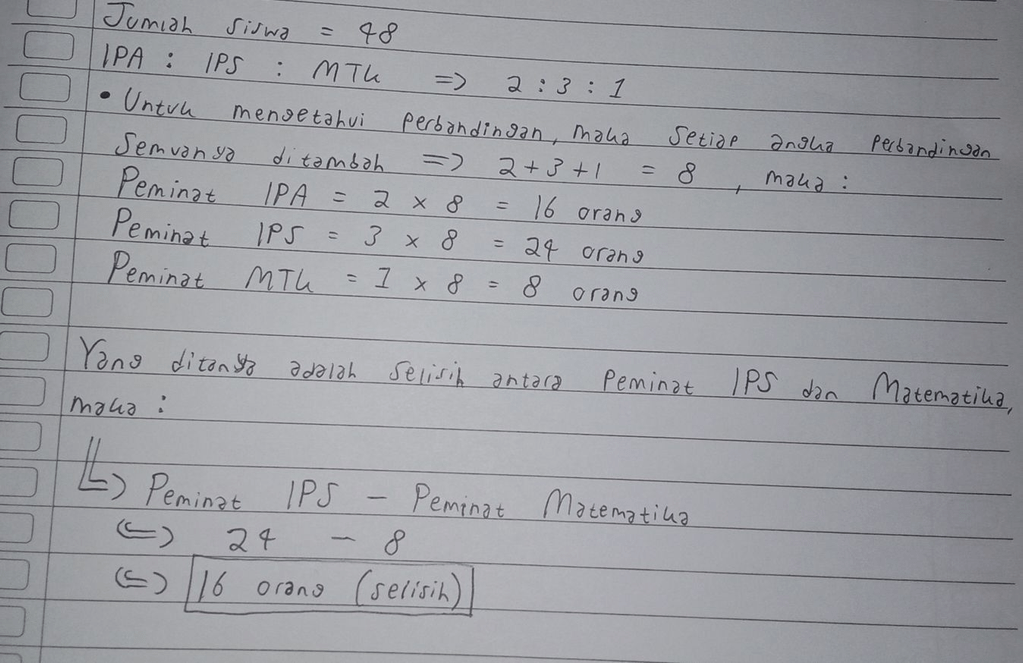 Jumlah siswa = 48
IPA : IPS : MTK => 2 : 3 : 1
• Untuk mengetahui perbandingan, maka setiap angka perbandingan
semuanya ditambah => 2 + 3 + 1 = 8 , maka :
Peminat IPA = 2 x 8 = 16 orang
Peminat IPS = 3 x 8 = 24 orang
Peminat MTK = 1 x 8 = 8 orang
Yang ditanya adalah selisih antara Peminat IPS dan Matematika,
maka :
↳ Peminat IPS - Peminat Matematika
<=> 24 - 8
<=> 16 orang (selisih)